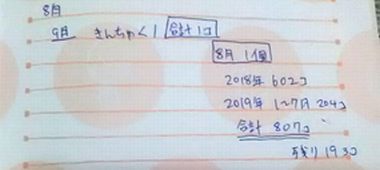 8月
9月 きんちゃく1 合計1コ
8月 1個
2018年 602コ
2019年 1~7月 204コ
合計 807コ
残り 193コ